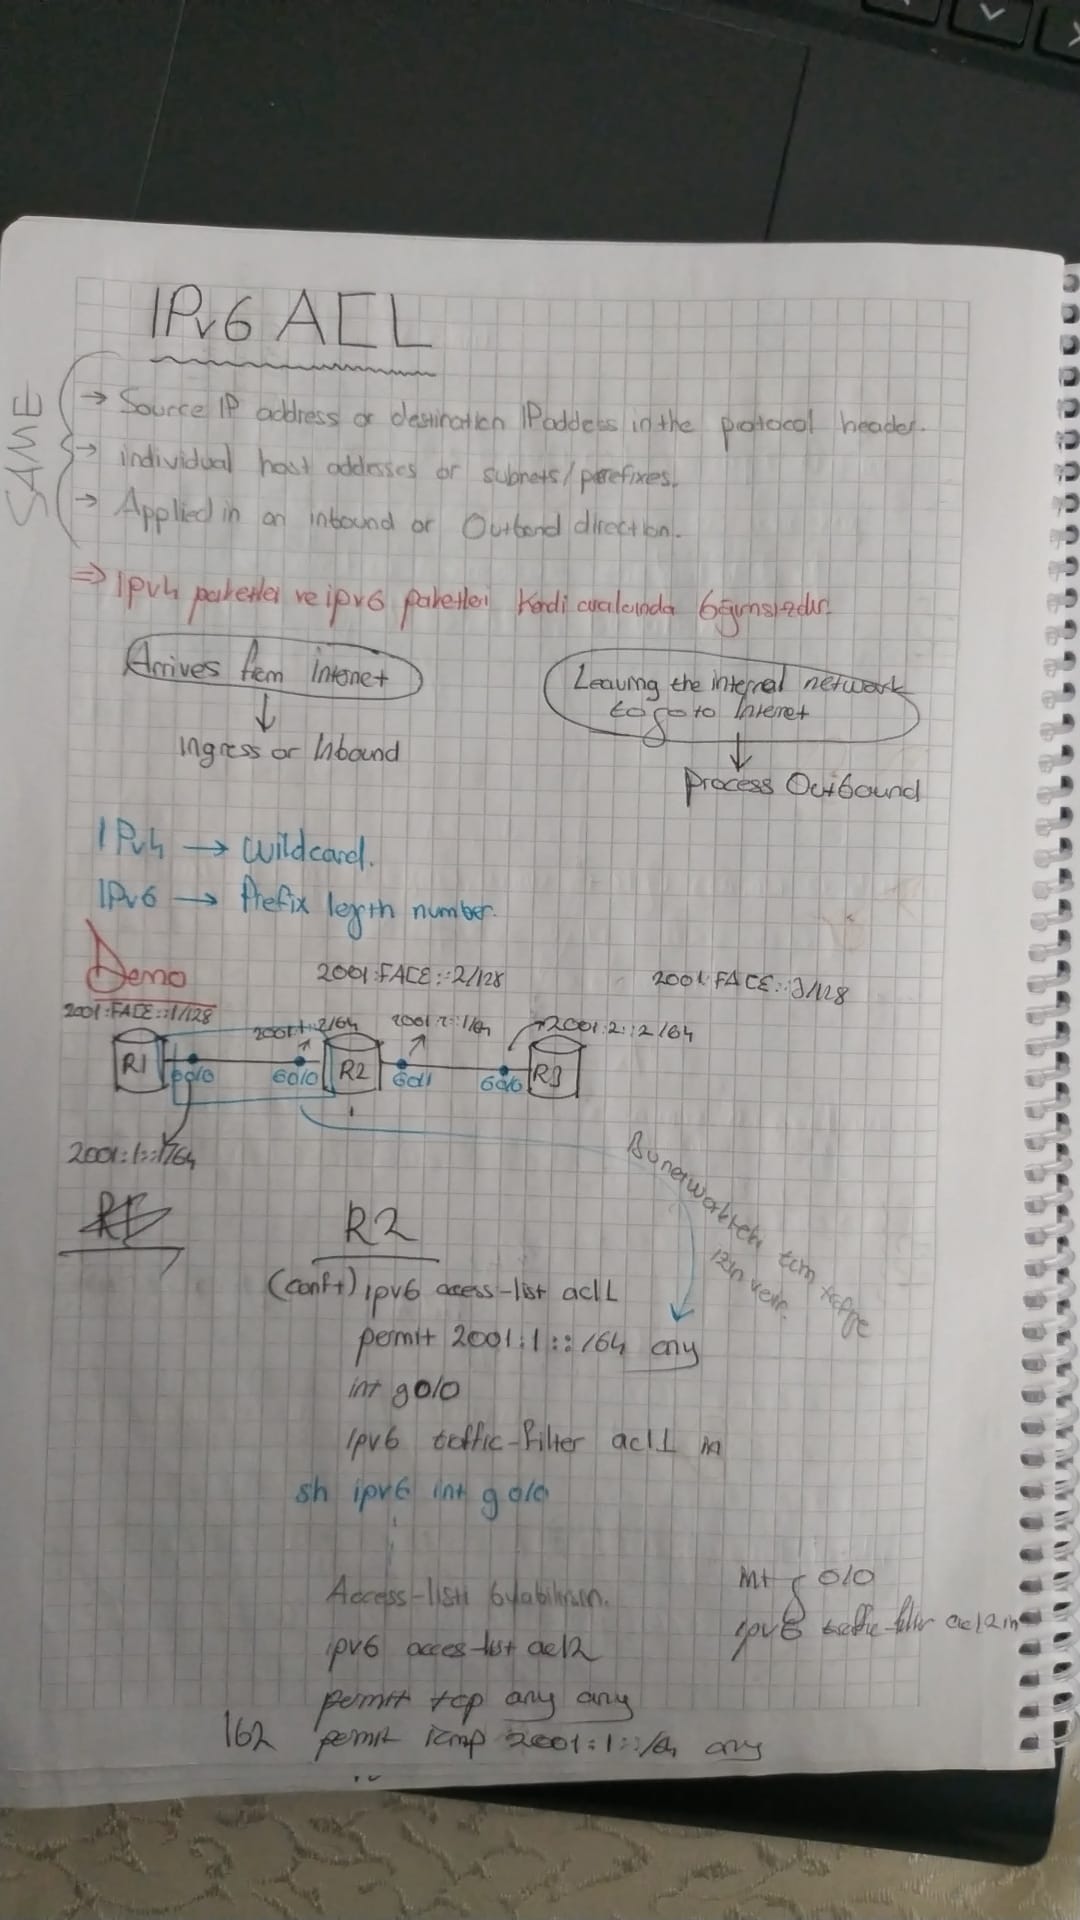 IPv6 ACL
SAME
→ Source IP address or destination IP addess in the protocol header.
→ individual host addesses or subnets/prefixes.
→ Applied in an inbound or Outbond direction.
⇒ Ipv4 paketler ve ipv6 paketleri kendi aralarında bğımsızdır.
Arrives from Internet
Ingress or Inbound
Leaving the internal network
to go to Internet
Process Outbound
IPv4 → Wildcard.
IPv6 → Prefix length number.
Demo
2001:FACE::2/128
2001:FACE::3/128
2001:FACE::1/128
2001:2::1/64
2001:2::2/64
R1
R2
R3
G0/0
G0/0
G0/1
G0/0
2001:1::1/64
Bu networkten tüm trafiğe
izin verir.
R2
(conf t) ipv6 acess-list acl1
permit 2001:1::/64 any
int g0/0
ipv6 traffic-filter acl1 in
sh ipv6 int g0/0
Access-listi
int g 0/0
ipv6 traffic-filter acl2 in
ipv6 acces-list acl2
permit tcp any any
162
permit icmp 2001:1::/64 any